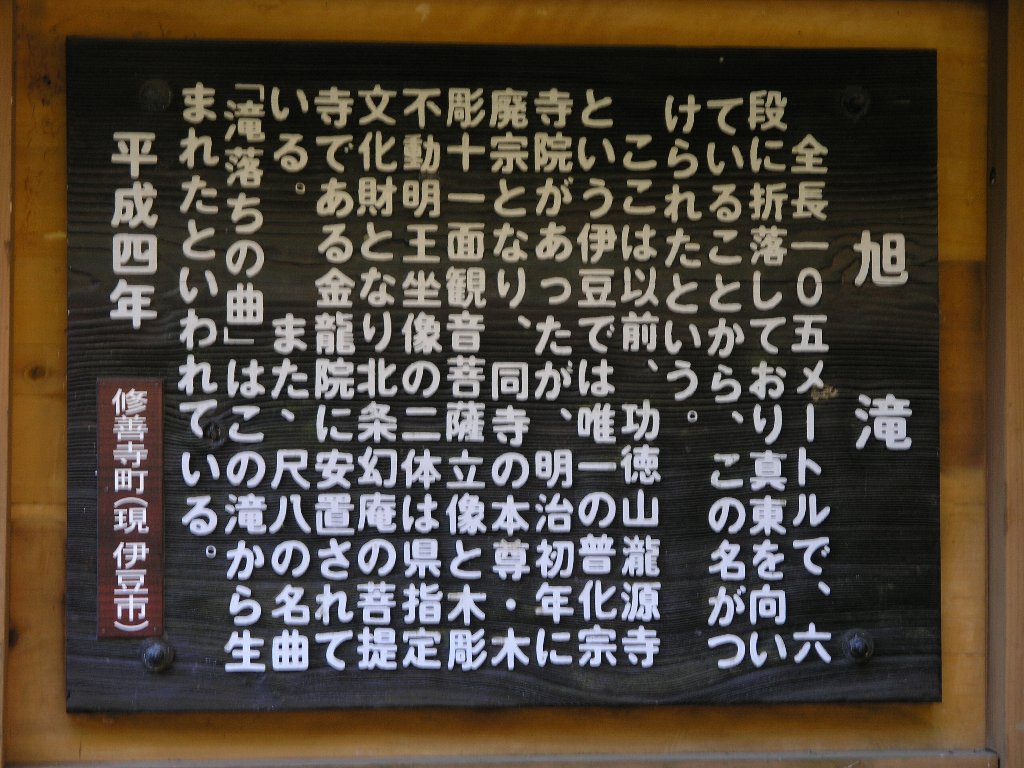 旭滝
全長一0五メートルで、六
段に折落しており真東を向い
ていることから、この名がつ
けられたという。
ここは以前、功徳山瀧源寺
という伊豆では唯一の普化宗
寺院があったが、明治初年に
廃宗となり、同寺の本尊・木
彫十一面観音菩薩立像と木彫
不動明王坐像の二体は県指定
文化財となり北条幻庵の菩提
寺である金龍院に安置されて
いる。また、尺八の名曲
「滝落ちの曲」はこの滝から生
まれたといわれている。
平成四年
修善寺町(現 伊豆市)